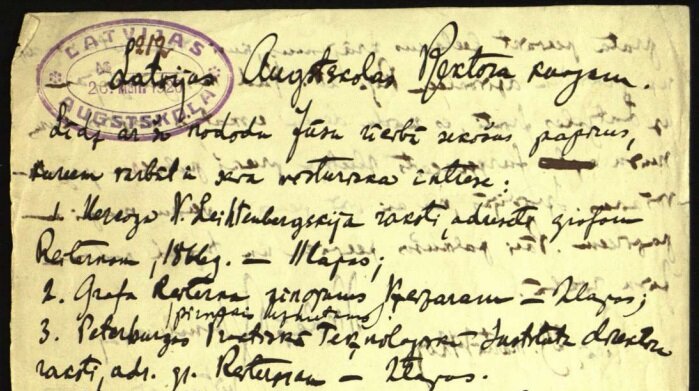 LATVIJAS
AUGSTSKOLA
212
Latvijas Augstskolas Rektora kungam.
Līdz ar šo nododu Jūsu rīcībā sekošus papīrus,
kuŗeem varbūt ir
1. Hercoga N. Leihtenbergskija raksti, adresēti grafam
Reiternam, 1866g. — 11 lapas;
2. Grafa Reiterna ziņojums — 2 lapas;
3. Peterburgas Praktiskā Technoloģiskā Institūta direktora
raksti, adr. gr. Reiternam — 2 lapas.